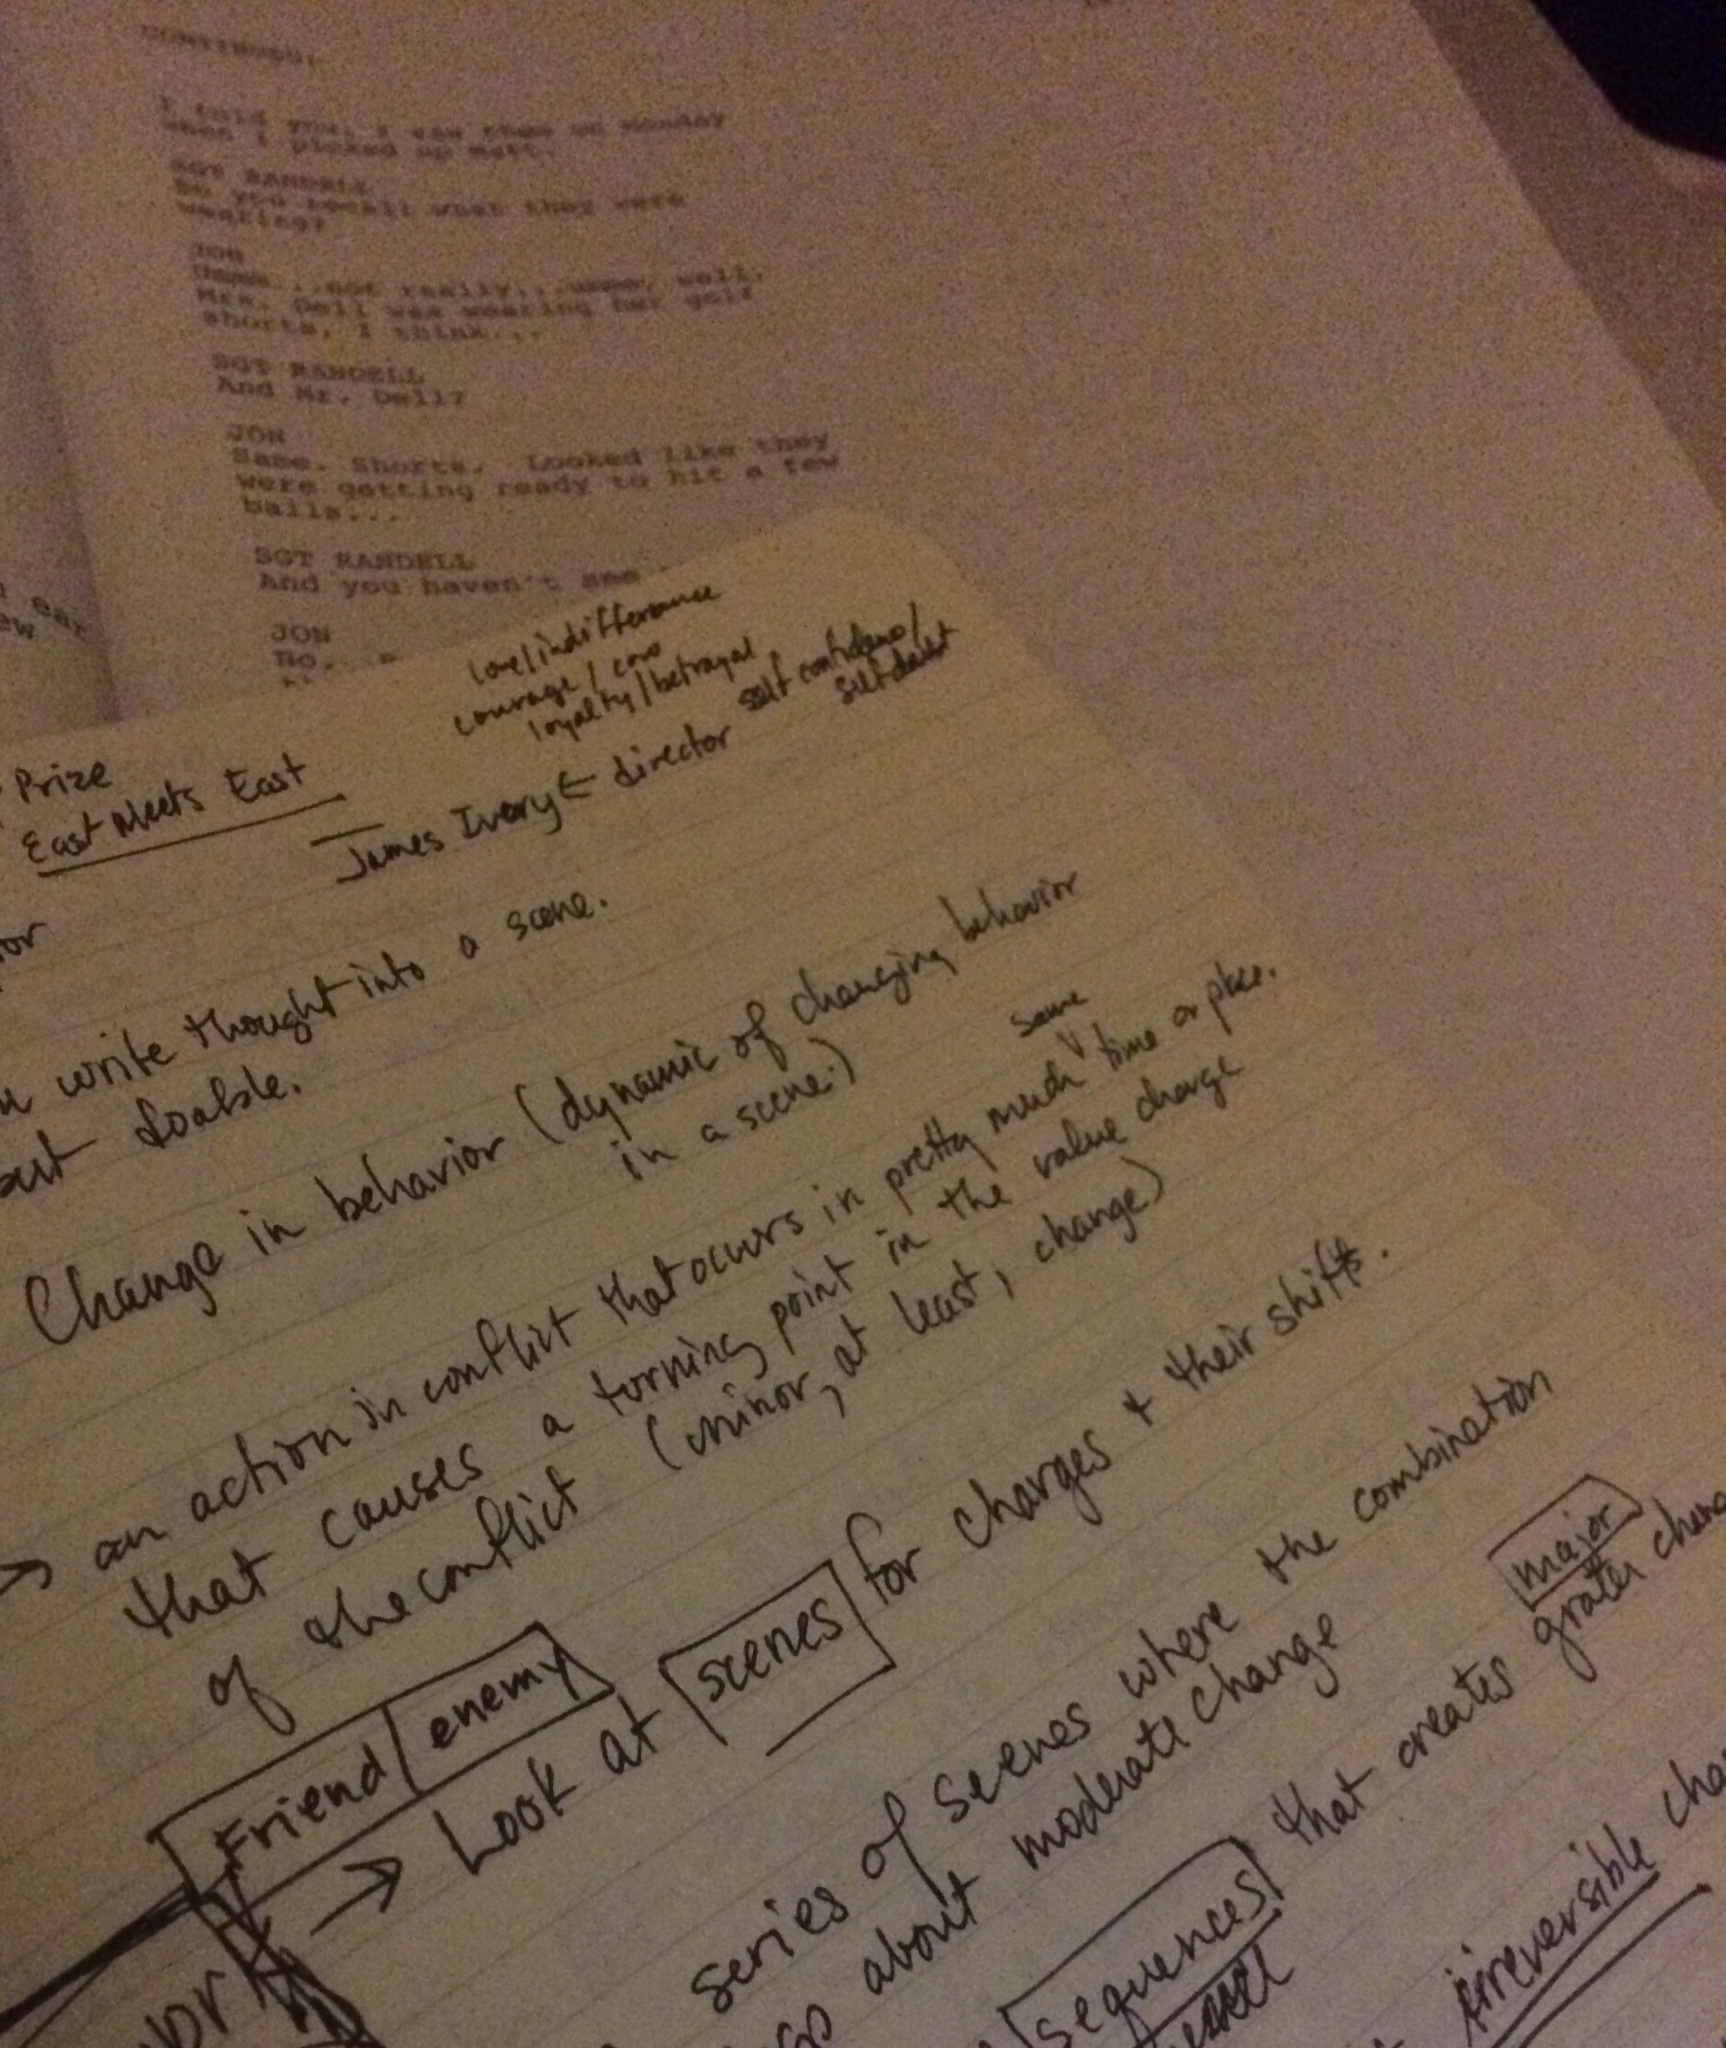 CONTINUED:
I told you, I saw them on Monday
when I picked up Matt.
SGT RANDELL
Do you recall what they were
wearing?
JON
Ummm...not really...ummm, well,
Mrs. Dell was wearing her golf
shorts, I think...
SGT RANDELL
And Mr. Dell?
JON
Same. Shorts. Looked like they
were getting ready to hit a few
balls...
SGT RANDELL
And you haven't see
JON
No.
ear
ew
love/indifference
courage/cow
loyalty/betrayal
self confidence/
self doubt
Prize
East Meets East
James Ivory ← director
or
write thought into a scene.
but doable.
Change in behavior (dynamic of changing behavior
in a scene.)
→ an action in conflict that occurs in pretty much same time or place.
that causes a turning point in the value charge
of the conflict (minor, at least, change)
Friend/enemy
→ Look at scenes for charges + their shifts.
series of scenes where the combination
about moderate change
major
sequences that creates grater chan
irreversible cha